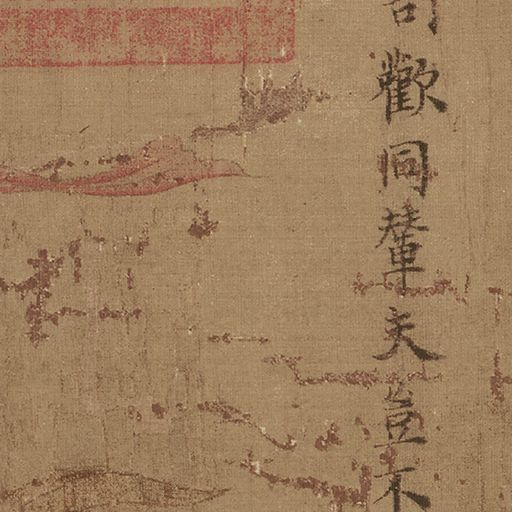 歡同輦夫豈不